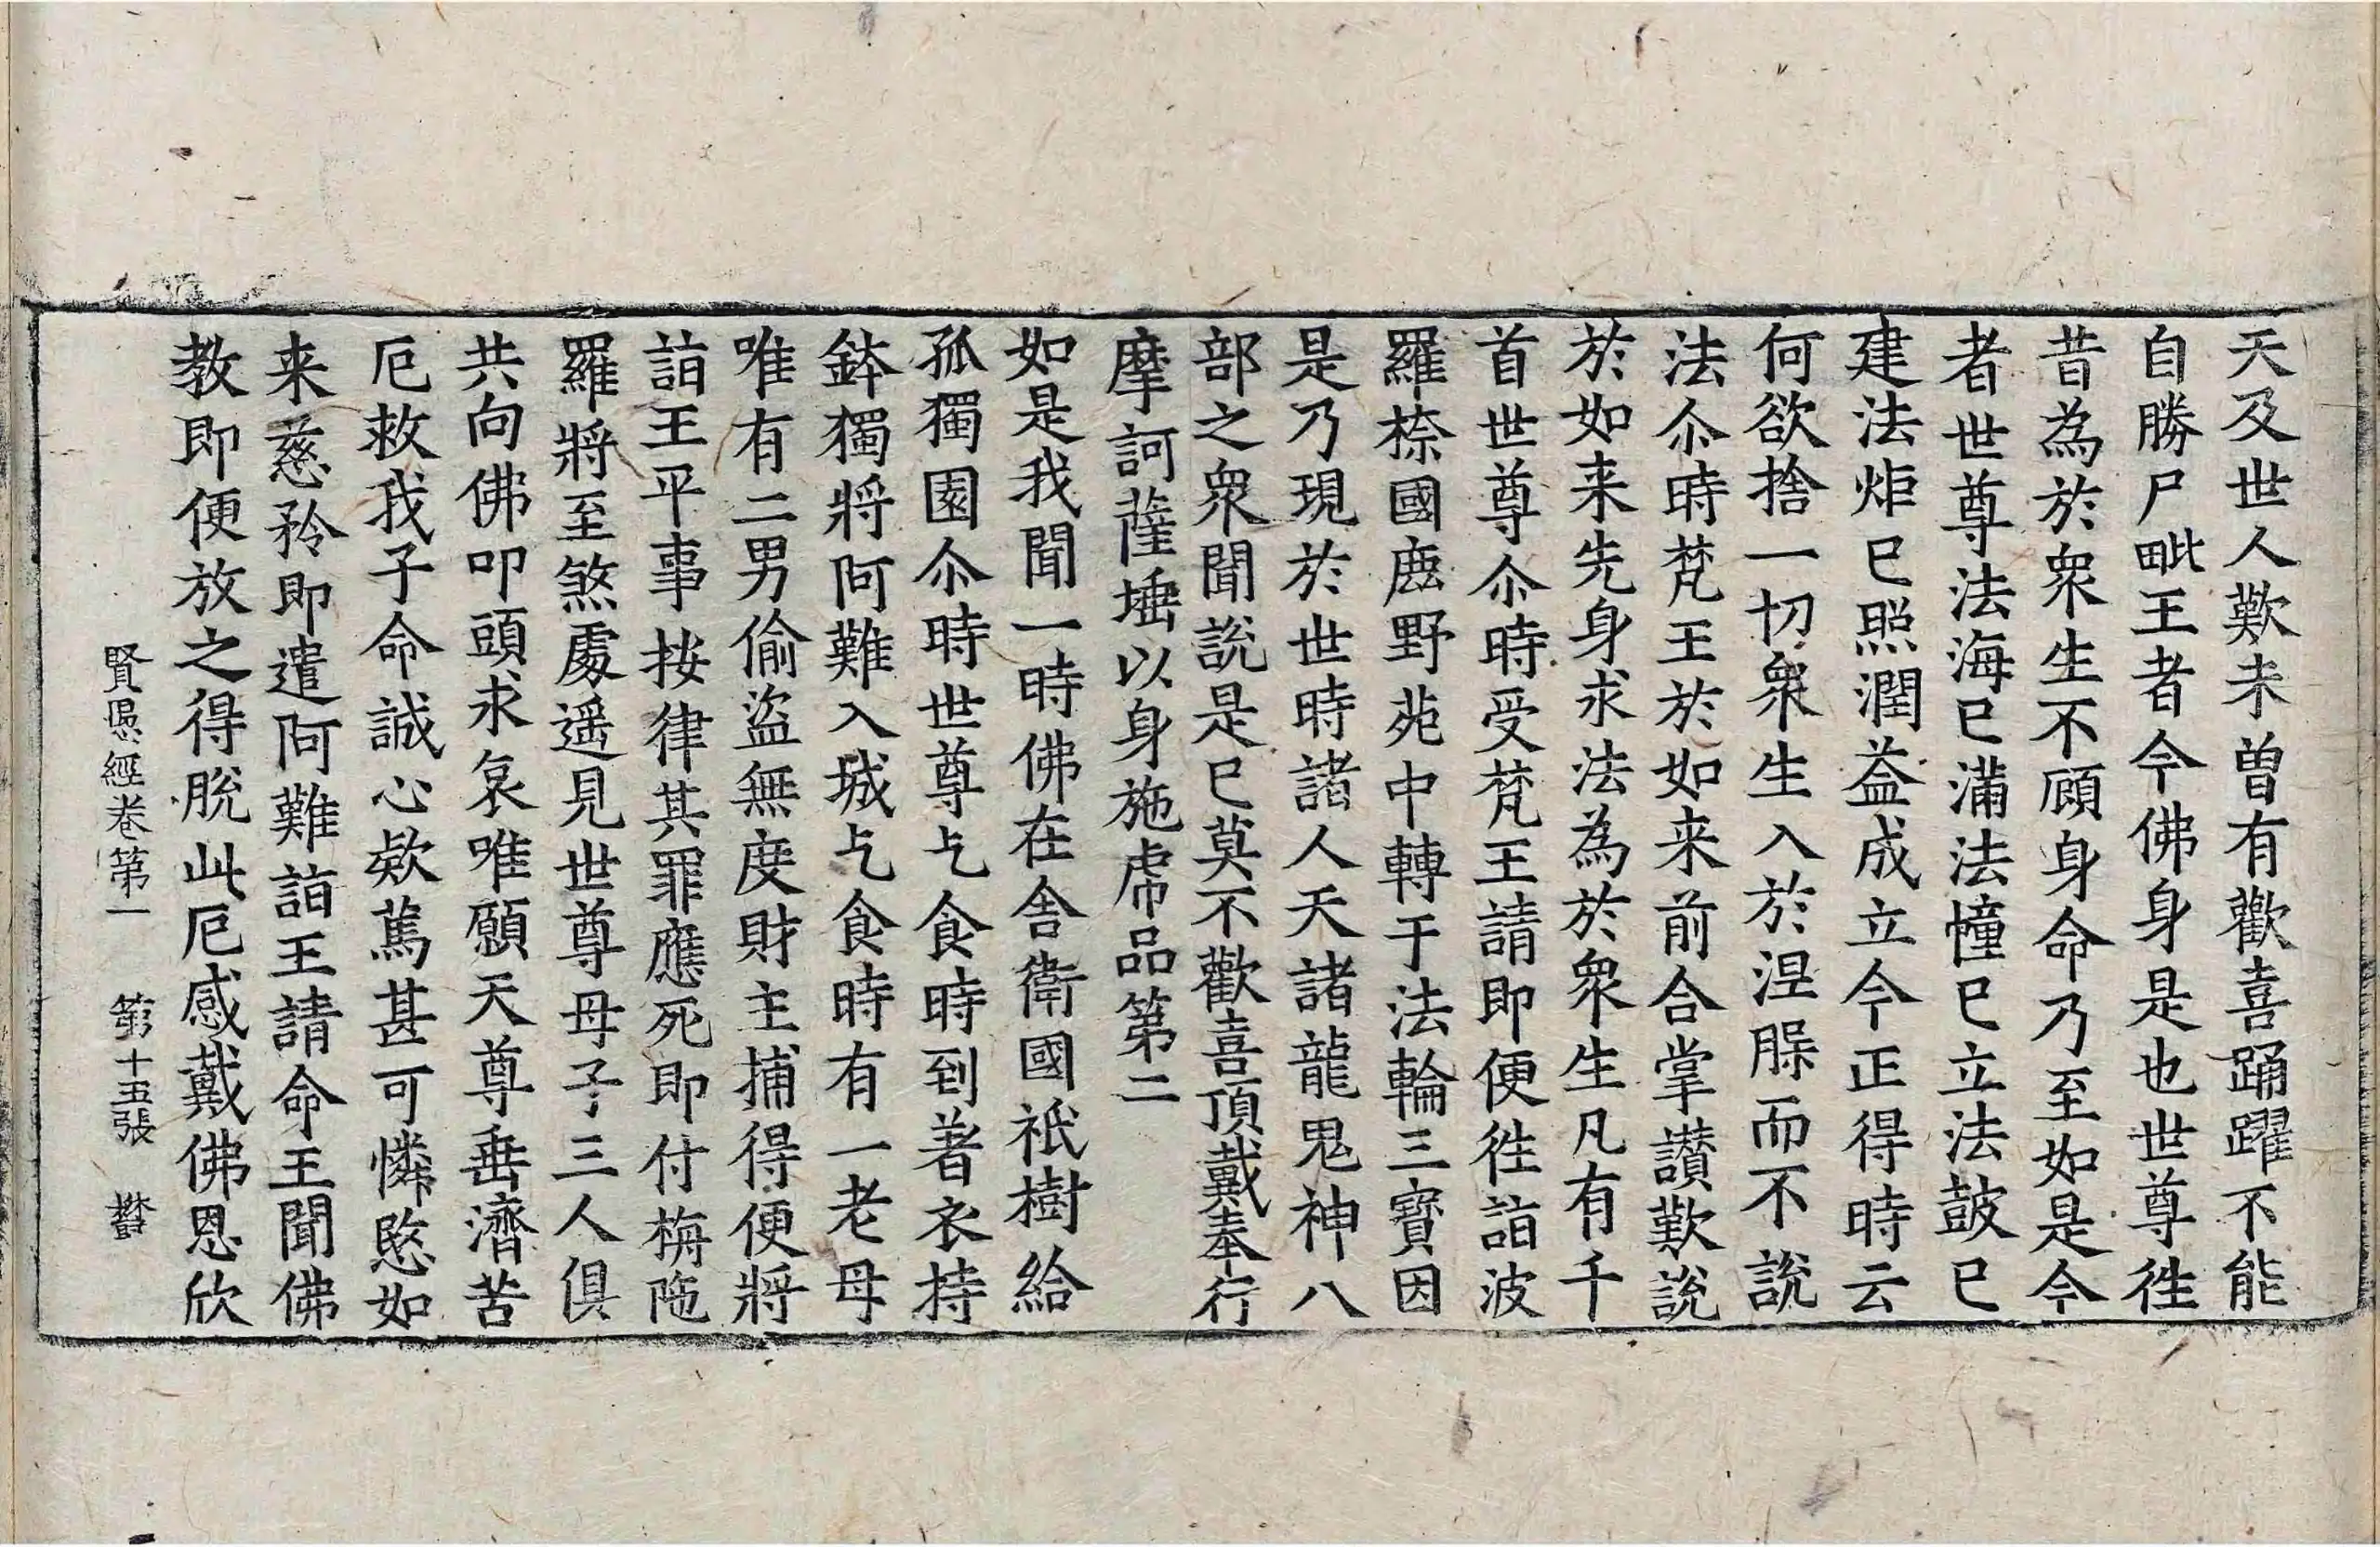 天及世人歎未曾有歡喜踊躍不能
自勝尸毗王者今佛身是也世尊往
昔為於衆生不顧身命乃至如是今
者世尊法海已滿法幢已立法鼓已
建法炬已照潤益成立今正得時云
何欲捨一切衆生入於涅槃而不說
法尒時梵王於如来前合掌讃歎說
於如来先身求法為於衆生凡有千
首世尊尒時受梵王請即便往詣波
羅㮈國鹿野苑中轉于法輪三寳因
是乃現於世時諸人天諸龍鬼神八
部之衆聞說是已莫不歡喜頂戴奉行
摩訶薩埵以身施虎品第二
如是我聞一時佛在舎衛國祇樹給
孤獨園尒時世尊乞食時到著衣持
鉢獨將阿難入城乞食時有一老母
唯有二男偷盜無度財主捕得便將
詣王平事按律其罪應死即付栴陁
羅將至煞處遥見世尊母子三人俱
共向佛叩頭求哀唯願天尊垂濟苦
厄救我子命誠心欵篤甚可憐愍如
来慈矜即遣阿難詣王請命王聞佛
教即便放之得脫此厄感戴佛恩欣
賢愚經卷第一 第十五張